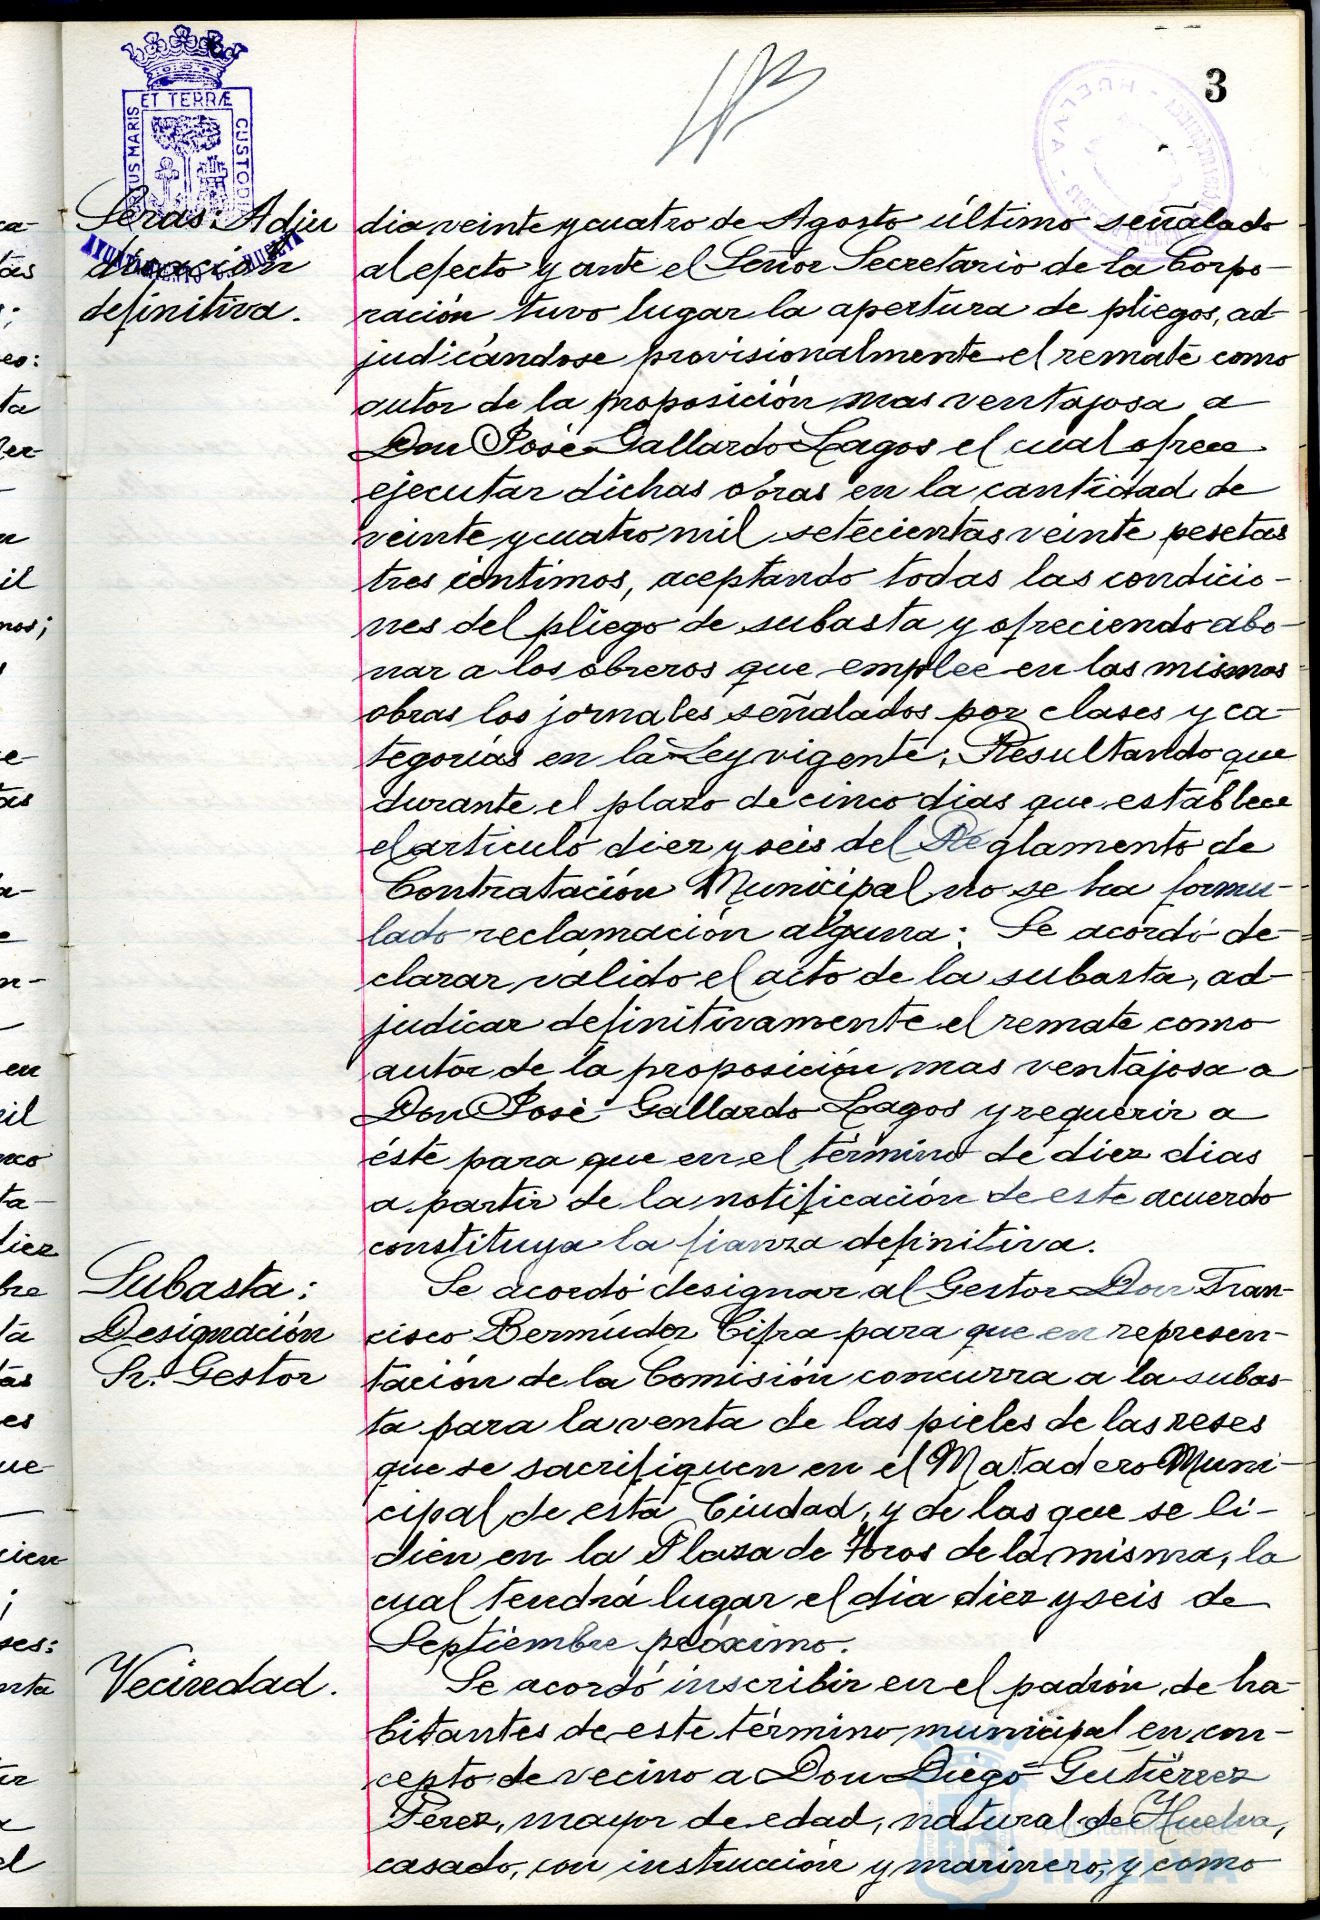 3
ET TERRÆ
CUSTODI
US MARIS
AYUNTAMIENTO DE HUELVA
HUELVA
Seras: Adju
dicación
definitiva.
dia veinte y cuatro de Agosto último señalado
al efecto y ante el Señor Secretario de la Corpo-
ración tuvo lugar la apertura de pliegos, ad-
judicándose provisionalmente el remate como
autor de la proposición mas ventajosa a
Don José Gallardo Lagos el cual ofrece
ejecutar dichas obras en la cantidad de
veinte y cuatro mil setecientas veinte pesetas
tres céntimos, aceptando todas las condicio-
nes del pliego de subasta y ofreciendo abo-
nar a los obreros que emplee en las mismas
obras los jornales señalados por clases y ca-
tegorías en la Ley vigente; Resultando que
durante el plazo de cinco dias que establece
el artículo diez y seis del Reglamento de
Contratación Municipal no se ha formu-
lado reclamación alguna: Se acordó de-
clarar válido el acto de la subasta, ad-
judicar definitivamente el remate como
autor de la proposición mas ventajosa a
Don José Gallardo Lagos y requerir a
éste para que en el término de diez dias
a partir de la notificación de este acuerdo
constituya la fianza definitiva.
Subasta:
Designación
Sr. Gestor
Se acordó designar al Gestor Don Fran-
cisco Bermúdez Cifra para que en represen-
tación de la Comisión concurra a la subas-
ta para la venta de las pieles de las reses
que se sacrifiquen en el Matadero Muni-
cipal de esta Ciudad, y de las que se li-
dien en la Plaza de Toros de la misma, la
cual tendrá lugar el dia diez y seis de
Septiembre próximo.
Vecindad.
Se acordó inscribir en el padrón de ha-
bitantes de este término municipal en con-
cepto de vecino a Don Diego Gutiérrez
Pérez, mayor de edad, natural de Huelva,
casado, con instrucción y marinero; y como
Ayuntamiento de
HUELVA